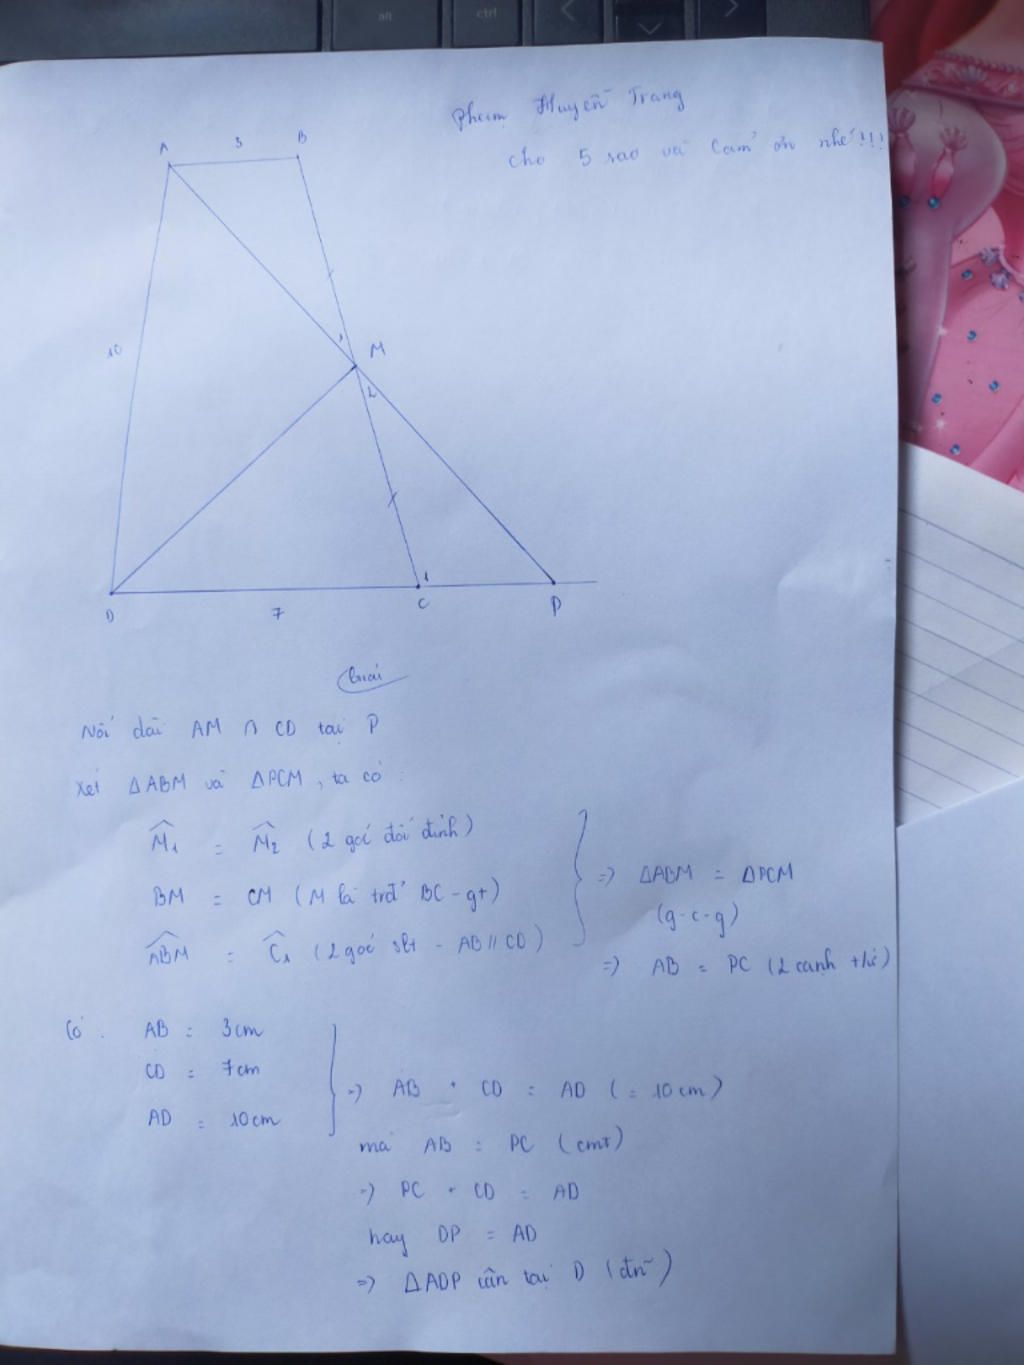 alt ctrl
Phạm Huyền Trang
cho 5 sao và Cảm ơn nhé!!!
A 3 B
10
M
1
2
1
D 7 C P
Giải
Nối dài AM ∩ CD tại P
Xét ΔABM và ΔPCM, ta có:
M̂₁ = M̂₂ (2 góc đối đỉnh)
BM = CM (M là trđ BC - gt)
ABM̂ = Ĉ₁ (2 góc slt - AB // CD)
=> ΔABM = ΔPCM
(g-c-g)
=> AB = PC (2 cạnh t/ứ)
Có: AB = 3cm
CD = 7cm
AD = 10cm
=> AB + CD = AD (= 10 cm)
mà AB = PC (cmt)
=> PC + CD = AD
hay DP = AD
=> ΔADP cân tại D (đn)